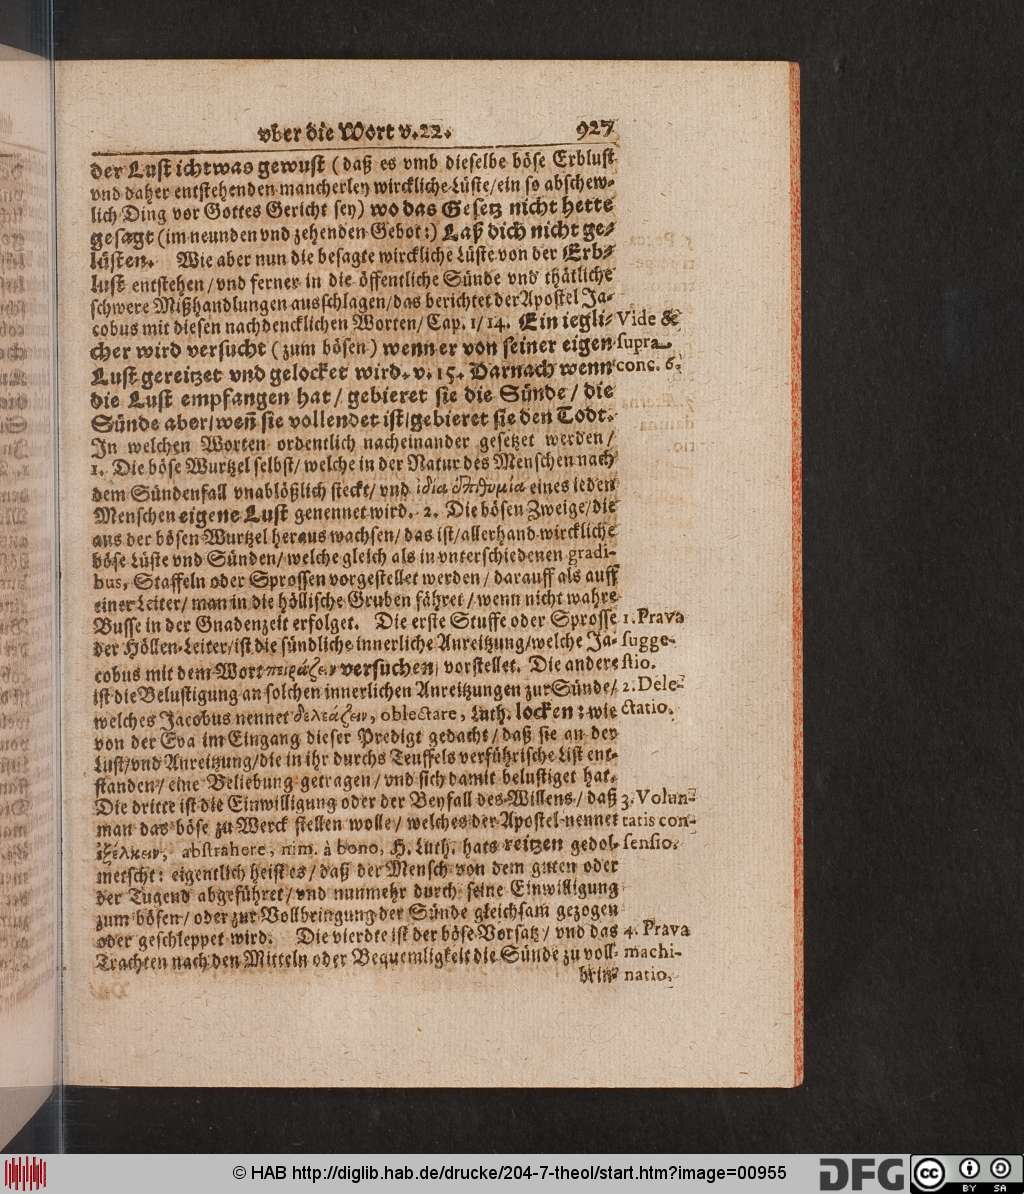 vber die Wort v.22. 927
der Lust ichtwas gewust (daß es vmb dieselbe böse Erblust
vnd daher entstehenden mancherley wirckliche Lüste/ein so abschew-
lich Ding vor Gottes Gericht sey) wo das Gesetz nicht hette
gesagt (im neunden vnd zehenden Gebot:) Laß dich nicht ge-
lüsten. Wie aber nun die besagte wirckliche Lüste von der Erb-
lust entstehen/vnd ferner in die öffentliche Sünde vnd thätliche
schwere Mißhandlungen ausschlagen/das berichtet der Apostel Ja-
cobus mit diesen nachdencklichen Worten/Cap. 1/14. Ein iegli-
cher wird versucht (zum bösen) wenn er von seiner eigen
Lust gereitzet vnd gelocket wird. v. 15. Darnach wenn
die Lust empfangen hat/gebieret sie die Sünde/die
Sünde aber/weñ sie vollendet ist/gebieret sie den Todt.
In welchen Worten ordentlich nacheinander gesetzet werden/
1. Die böse Wurtzel selbst/welche in der Natur des Menschen nach
dem Sündenfall vnablößlich steckt/vnd ἰδία ἐπιθυμία eines ieden
Menschen eigene Lust genennet wird. 2. Die bösen Zweige/die
aus der bösen Wurtzel heraus wachsen/das ist/allerhand wirckliche
böse Lüste vnd Sünden/welche gleich als in vnterschiedenen gradi-
bus, Staffeln oder Sprossen vorgestellet werden/darauff als auff
einer Leiter/man in die höllische Gruben fähret/wenn nicht wahre
Busse in der Gnadenzeit erfolget. Die erste Stuffe oder Sprosse
der Höllen-Leiter/ist die sündliche innerliche Anreitzung/welche Ja-
cobus mit dem Wort πειράζειν versuchen/vorstellet. Die andere
ist die Belustigung an solchen innerlichen Anreitzungen zur Sünde/
welches Jacobus nennet δελεάζειν, oblectare, Luth. locken: wie
von der Eva im Eingang dieser Predigt gedacht/daß sie an der
Lust/vnd Anreitzung/die in ihr durchs Teuffels verführische List ent-
standen/eine Beliebung getragen/vnd sich damit belustiget hat.
Die dritte ist die Einwilligung oder der Beyfall des Willens/daß
man das böse zu Werck stellen wolle/welches der Apostel nennet
ἐξέλκειν, abstrahere, nim. à bono, H. Luth. hats reitzen gedol-
metscht: eigentlich heist es/daß der Mensch von dem guten oder
der Tugend abgeführet/vnd nunmehr durch seine Einwilligung
zum bösen/oder zur Vollbringung der Sünde gleichsam gezogen
oder geschleppet wird. Die vierdte ist der böse Vorsatz/vnd das
Trachten nach den Mitteln oder Bequemligkeit die Sünde zu voll-
brin-
Vide &
supra
conc. 6.
1. Prava
sugge-
stio.
2. Dele-
ctatio.
3. Volun-
tatis con-
sensio.
4. Prava
machi-
natio.
© HAB http://diglib.hab.de/drucke/204-7-theol/start.htm?image=00955
DFG
cc
BY SA